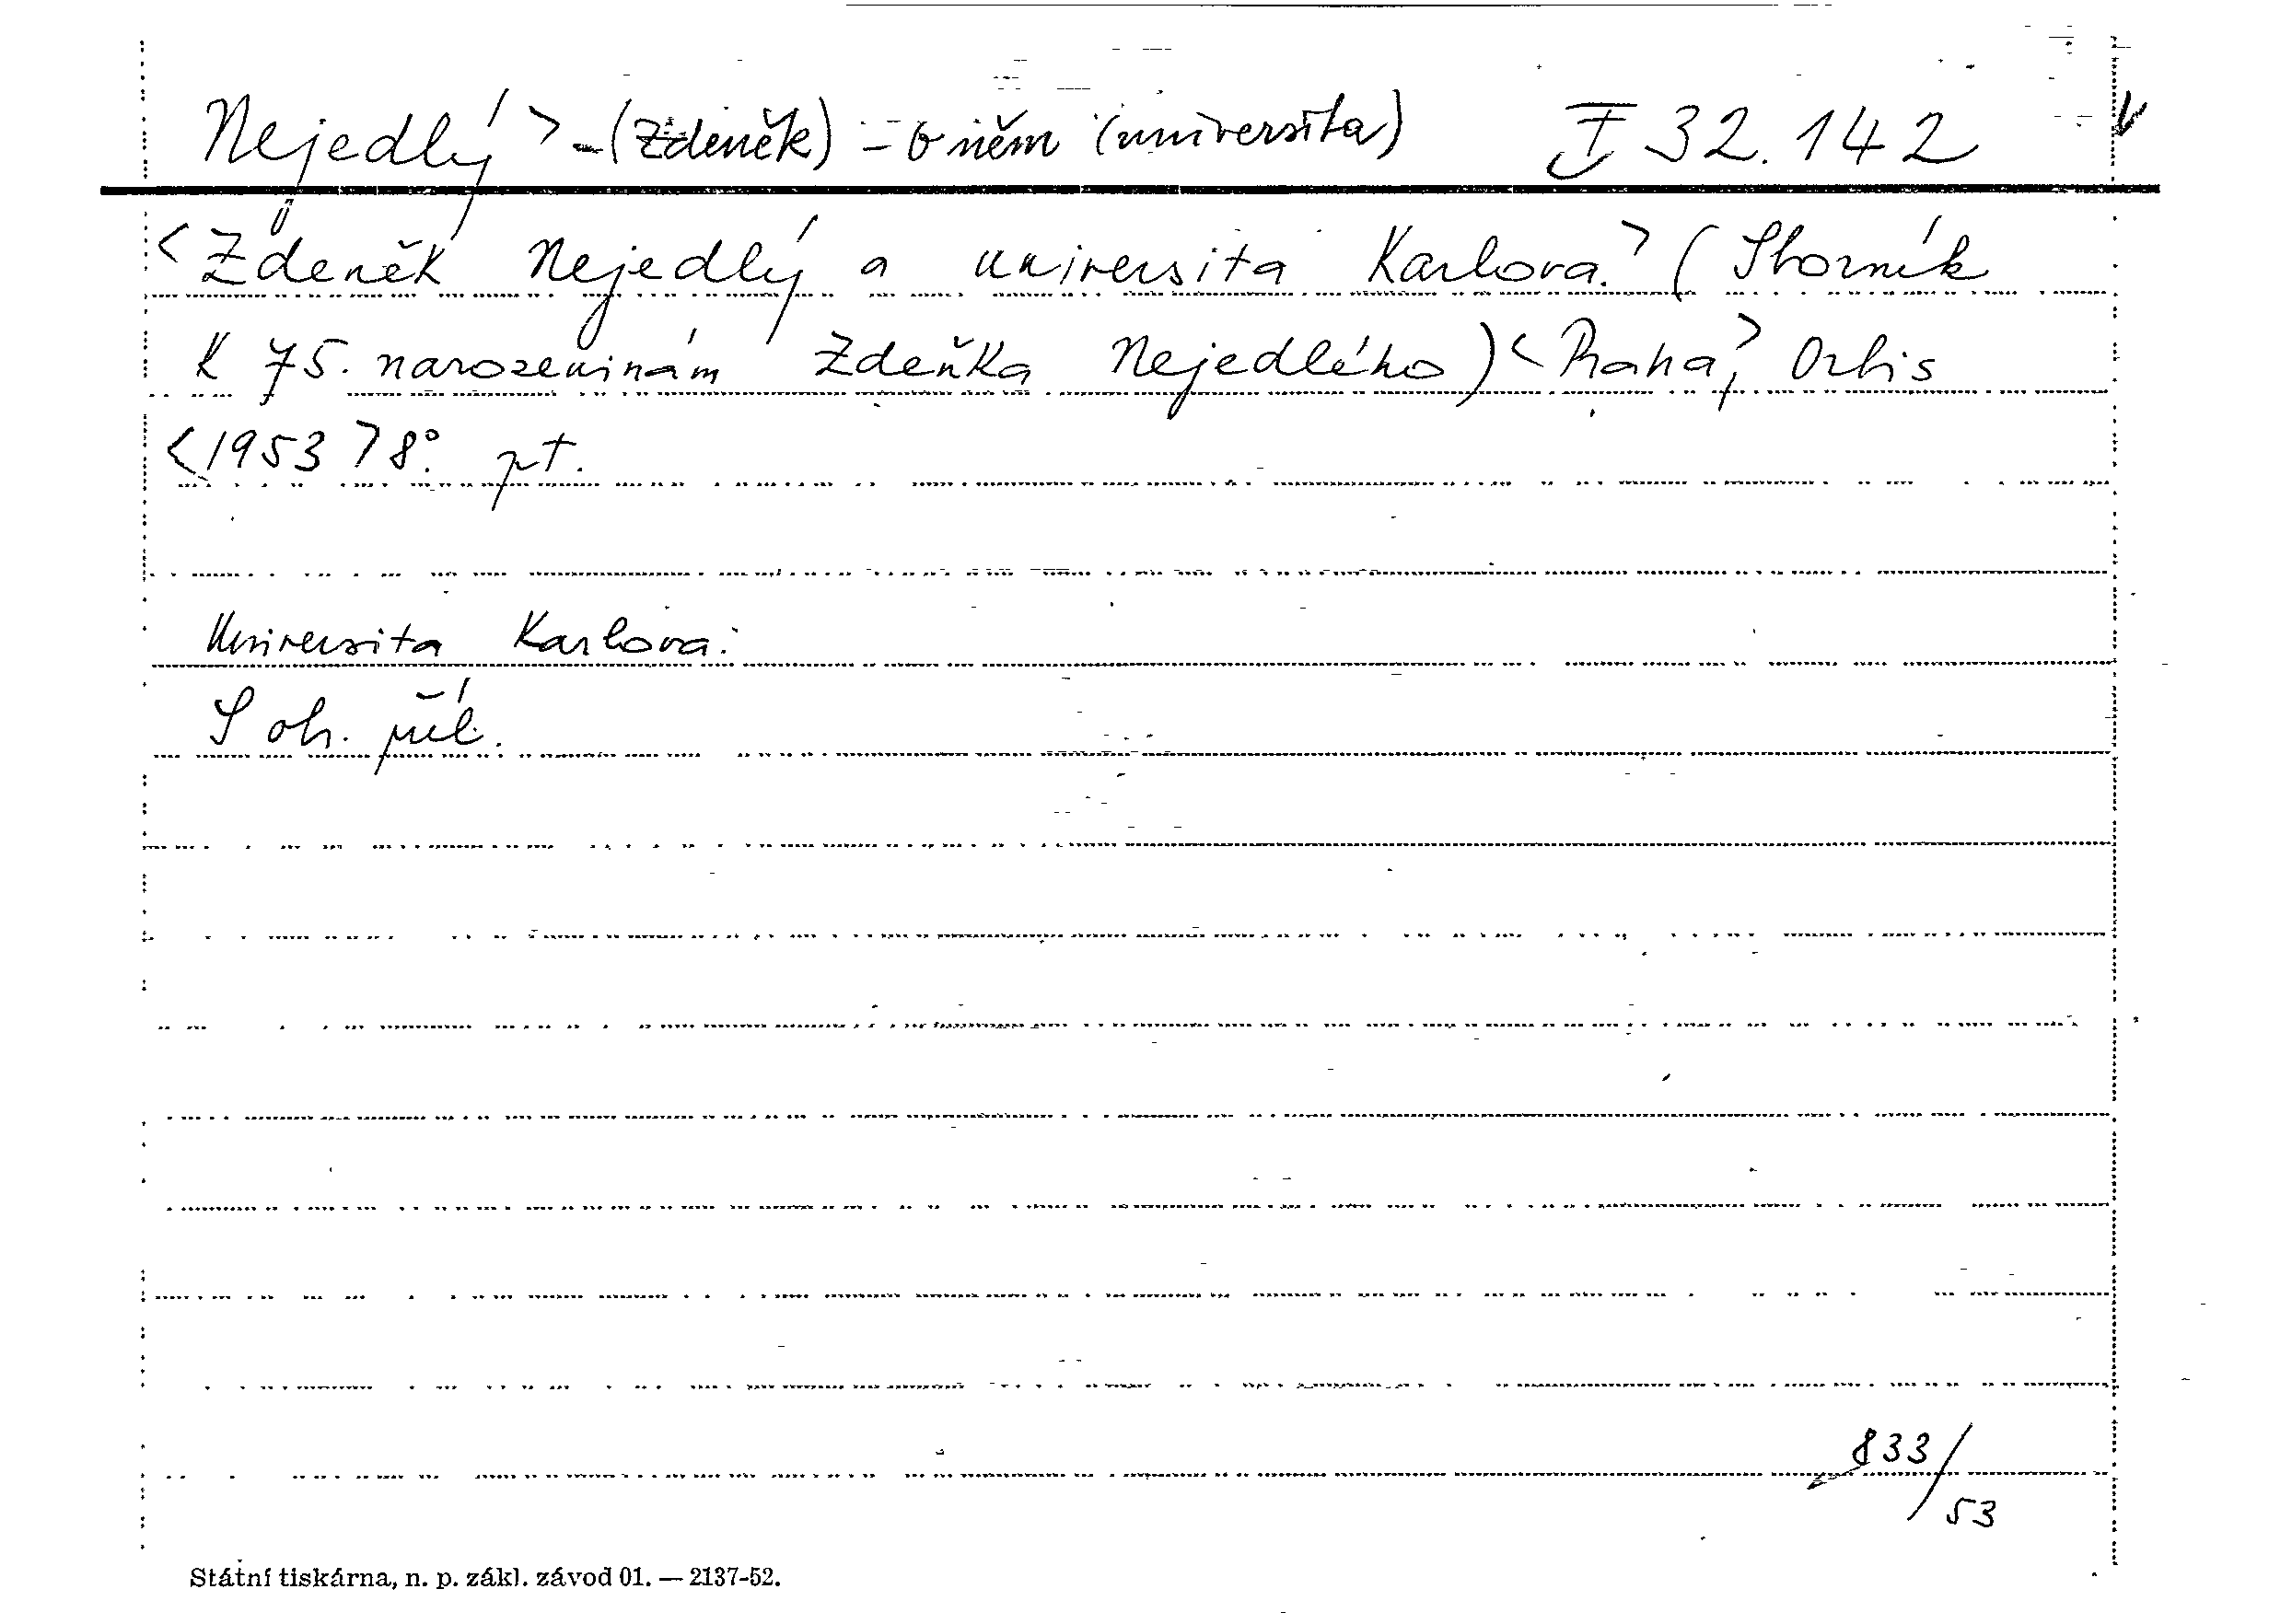 Nejedlý > - (Zdeněk) - o něm (universita) I 32.142
< Zdeněk Nejedlý a universita Karlova. > (Sborník
K 75. narozeninám Zdeňka Nejedlého) < Praha, > Orbis
< 1953 > 8°. pt.
Universita Karlova.
S obr. příl.
833/
53
Státní tiskárna, n. p. zákl. závod 01. — 2137-52.